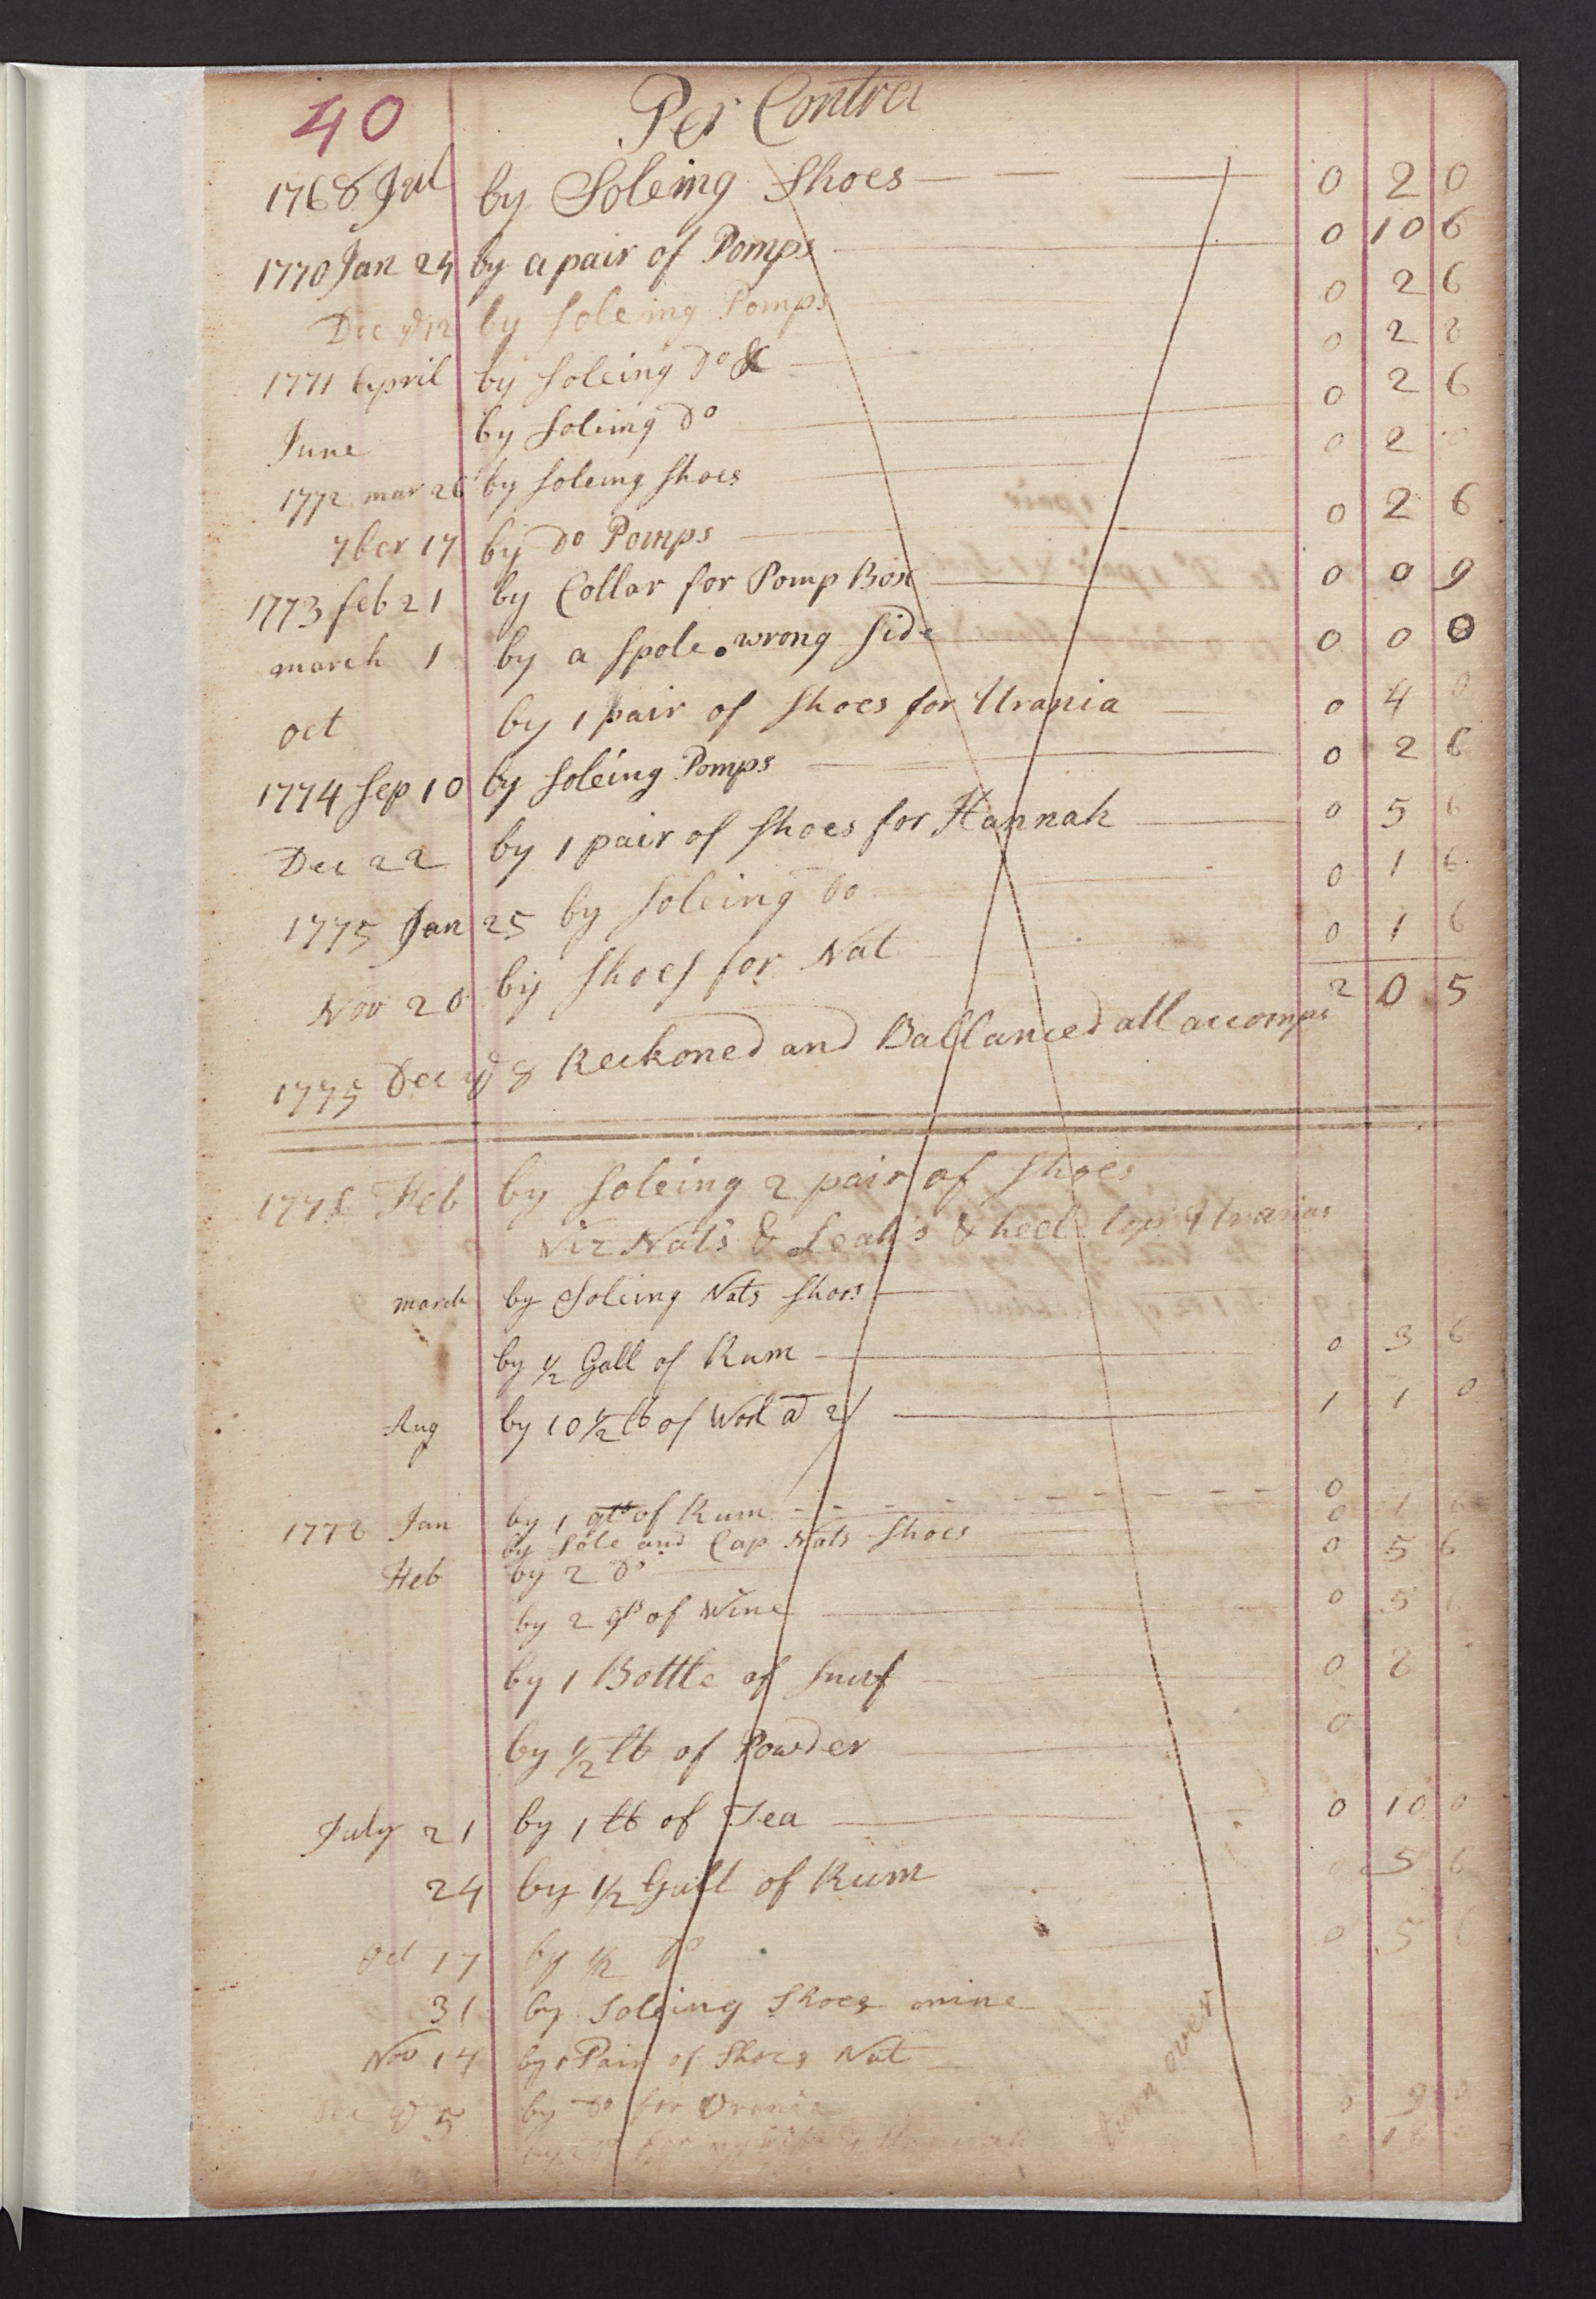 40 Per Contra
1768 Jul by Soleing Shoes 0 2 0
1770 Jan 24 by a pair of Pomps 0 10 6
Dec ye 12 by soleing Pomps 0 2 6
1771 April by soleing Do & 0 2 8
June by soleing Do 0 2 6
1772 mar 26 by soleing shoes 0 2 0
7ber 17 by Do Pomps 0 2 6
1773 feb 21 by Collar for Pomp Box 0 0 9
march 1 by a spole wrong side 0 0 0
oct by 1 pair of shoes for Urania 0 4 0
1774 Sep 10 by soleing Pomps 0 2 6
Dec 22 by 1 pair of shoes for Hannah 0 5 6
1775 Jan 25 by soleing Do 0 1 6
Nov 20 by shoes for Nat 0 1 6
2 0 5
1775 Dec ye 8 Reckoned and Ballanced all accompts
Feb by soleing 2 pair of shoes
viz Nats & Leah's & heel top Uranias
march by Soleing Nats shoes
by 1/2 Gall of Rum 0 3 6
Aug by 10 1/2 lb of Wool a 2/ 1 1 0
1778 Jan by 1 qts of Rum 0
by sole and Cap Nats shoes 0 1 6
Feb by 2 Do 0 5 6
by 2 qts of Wine 0 5
by 1 Bottle of snuf 0 2
by 1/2 lb of Powder 0
July 21 by 1 lb of Tea 0 10 0
24 by 1/2 Gall of Rum 0 5 6
Oct 17 by 1/2 Do 0 5
31 by Soleing Shoes mine
Nov 14 by 1 Pair of Shoes Nat
Dec ye 5 by Do for Urania 9 0
turn over